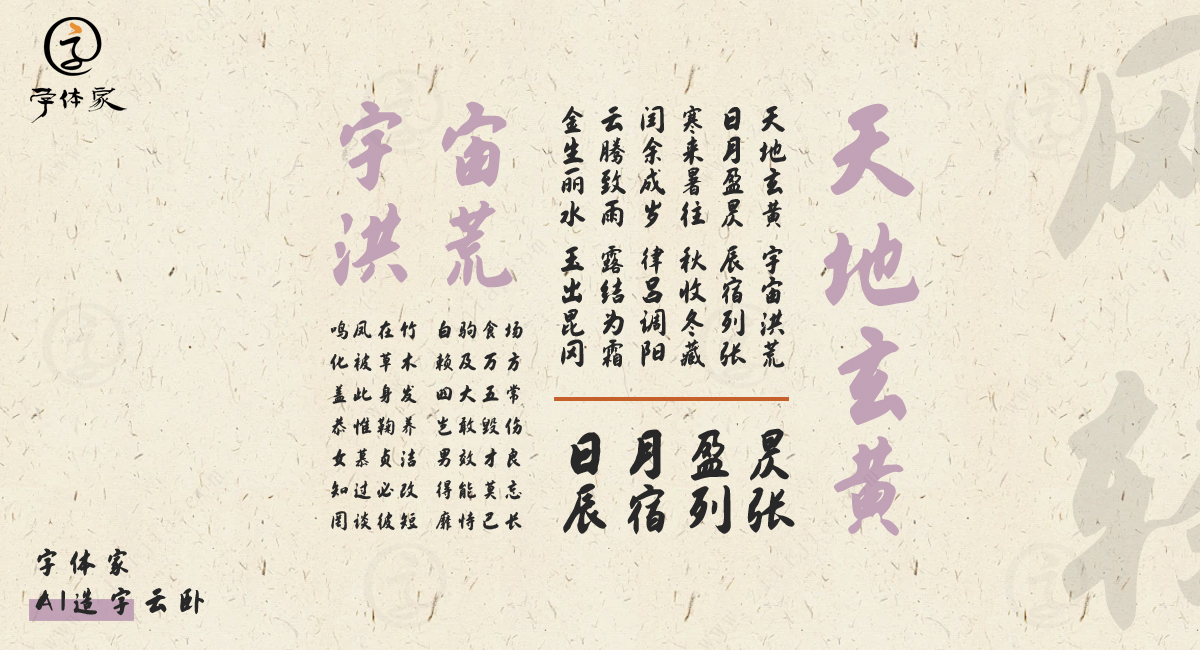 字体家
天地玄黄
天地玄黄 宇宙洪荒
日月盈昃 辰宿列张
寒来暑往 秋收冬藏
闰余成岁 律吕调阳
云腾致雨 露结为霜
金生丽水 玉出昆冈
日月盈昃
辰宿列张
宇宙
洪荒
鸣凤在竹 白驹食场
化被草木 赖及万方
盖此身发 四大五常
恭惟鞠养 岂敢毁伤
女慕贞洁 男效才良
知过必改 得能莫忘
罔谈彼短 靡恃己长
字体家
AI造字云卧